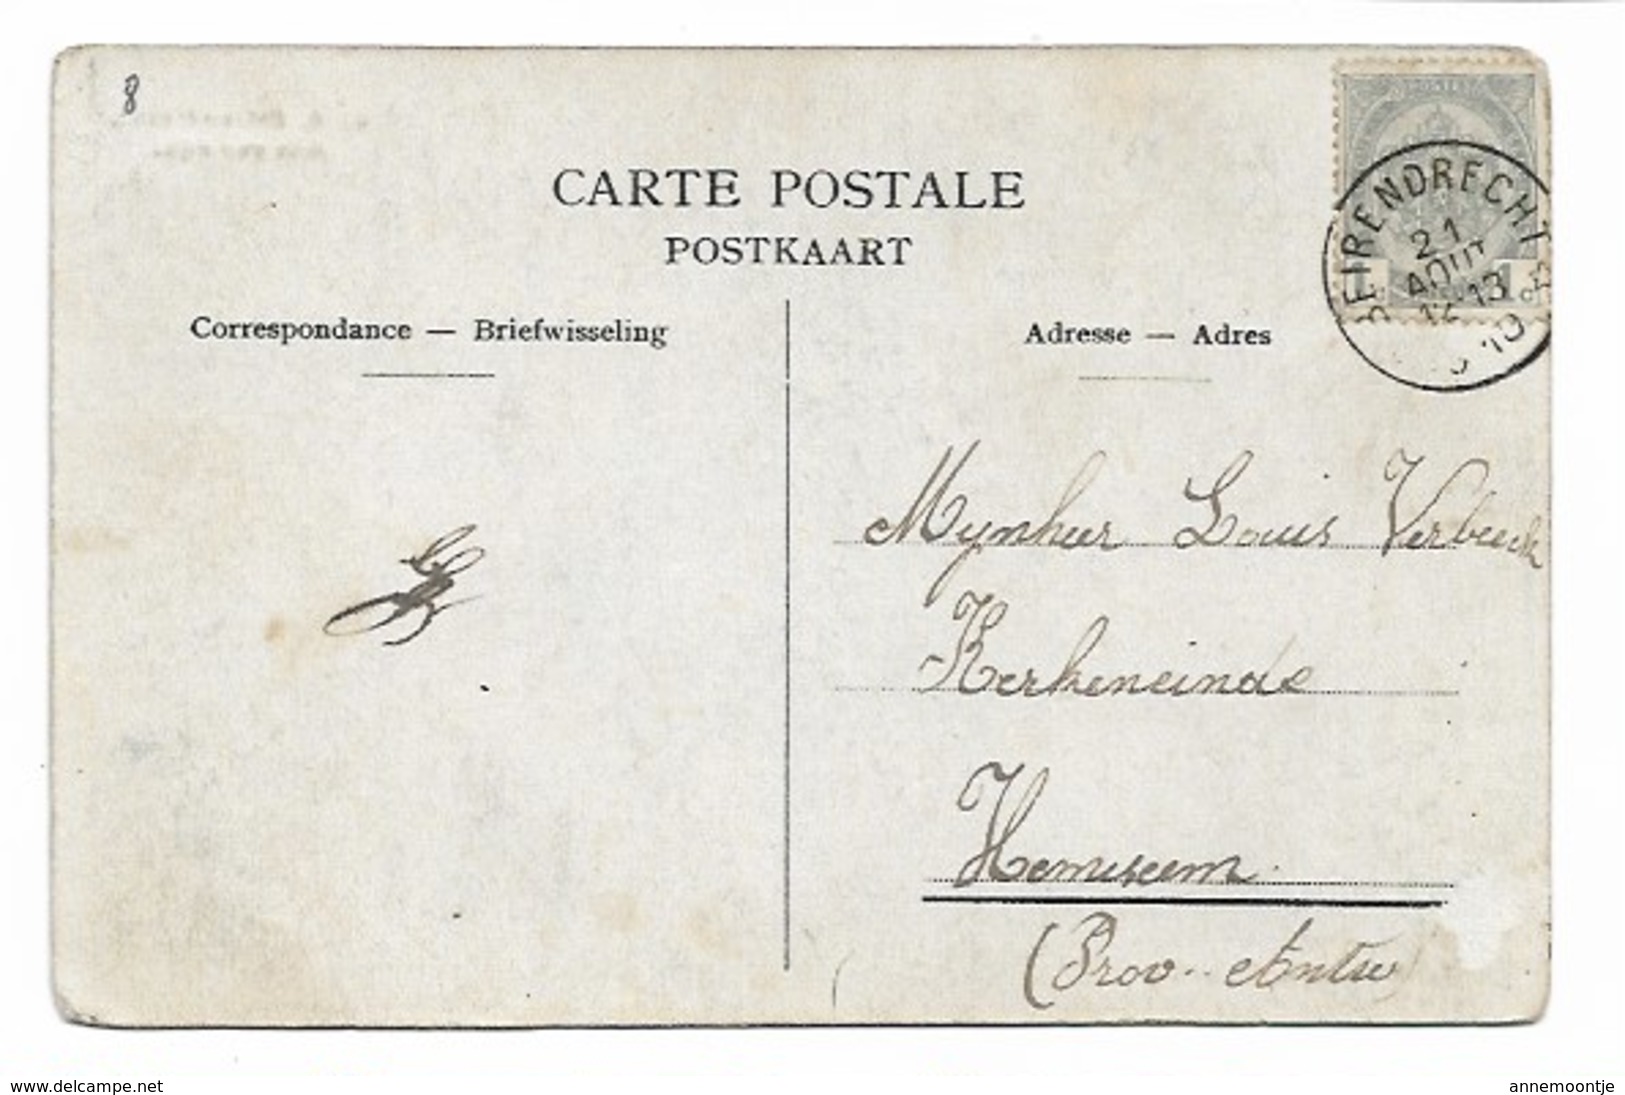 8
CARTE POSTALE
POSTKAART
Correspondance — Briefwisseling
Adresse — Adres
BEIRENDRECHT
21
AOUT
12-13
1910
POSTES
Mynheer Louis Verbeeck
Kerkeneinde
Hemixem
(Prov. Antw)
www.delcampe.net
annemoontje